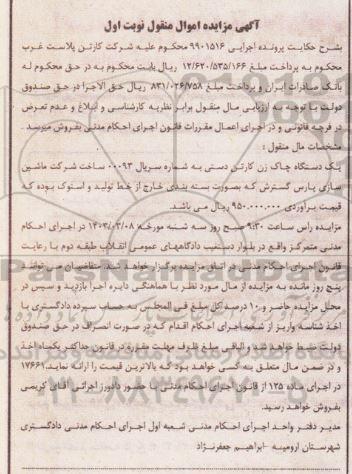 آگهی مزایده اموال منقول نوبت اول
بشرح حکایت پرونده اجرایی ۹۹۰۱۵۱۶ محکوم علیه شرکت کارتن پلاست غرب
محکوم به پرداخت مبلغ ۱۲/۶۲۰/۵۳۵/۱۶۶ ریال بابت محکوم به در حق محکوم له
بانک صادرات ایران و پرداخت مبلغ ۸۳۱/۰۲۶/۷۵۸ ریال حق الاجرا در حق صندوق
دولت با توجه به ارزیابی مال منقول برابر نظریه کارشناسی و ابلاغ و عدم تعرض
در فرجه قانونی و در اجرای اعمال مقررات قانون اجرای احکام مدنی بفروش میرسد
مشخصات مال منقول :
یک دستگاه چاک زن کارتن دستی به شماره سریال ۰۰۰۹۳ ساخت شرکت ماشین
سازی پارس گسترش که بصورت بسته بندی خارج از خط تولید و استوک بوده که
قیمت برآوردی ۹۵۰.۰۰۰.۰۰۰ ریال می باشد.
مزایده راس ساعت ۹:۳۰ صبح روز سه شنبه مورخه ۱۴۰۳/۰۳/۰۸ در اجرای احکام
مدنی متمرکز واقع در بلوار دستغیب دادگاههای عمومی انقلاب طبقه دوم با رعایت
قانون اجرای احکام مدنی در اتاق مزایده برگزار خواهد شد. متقاضیان می توانند
پنج روز مانده به مزایده از مال مورد نظر با هماهنگی دایره اجرا بازدید و سپس در
محل مزایده حاضر و ۱۰ درصد کل مبلغ فی المجلس به حساب سپرده دادگستری با
اخذ شناسه واریز از شعبه اجرای احکام اقدام که در صورت انصراف در حق صندوق
دولت ضبط خواهد شد و الباقی مبلغ ظرف مهلت مقرره در قانون حداکثر یکماه اخذ
و در ضمن مال متعلق به کسی خواهد بود که بالاترین قیمت را ارائه نماید. ۱۷۶۶۱
در اجرای ماده ۱۲۵ از قانون اجرای احکام مدنی با حضور دادورز اجرائی آقای کریمی
بفروش خواهد رسید.
مدیر دفتر واحد اجرای احکام مدنی شعبه اول اجرای احکام مدنی دادگستری
شهرستان ارومیه -ابراهیم جعفرنژاد